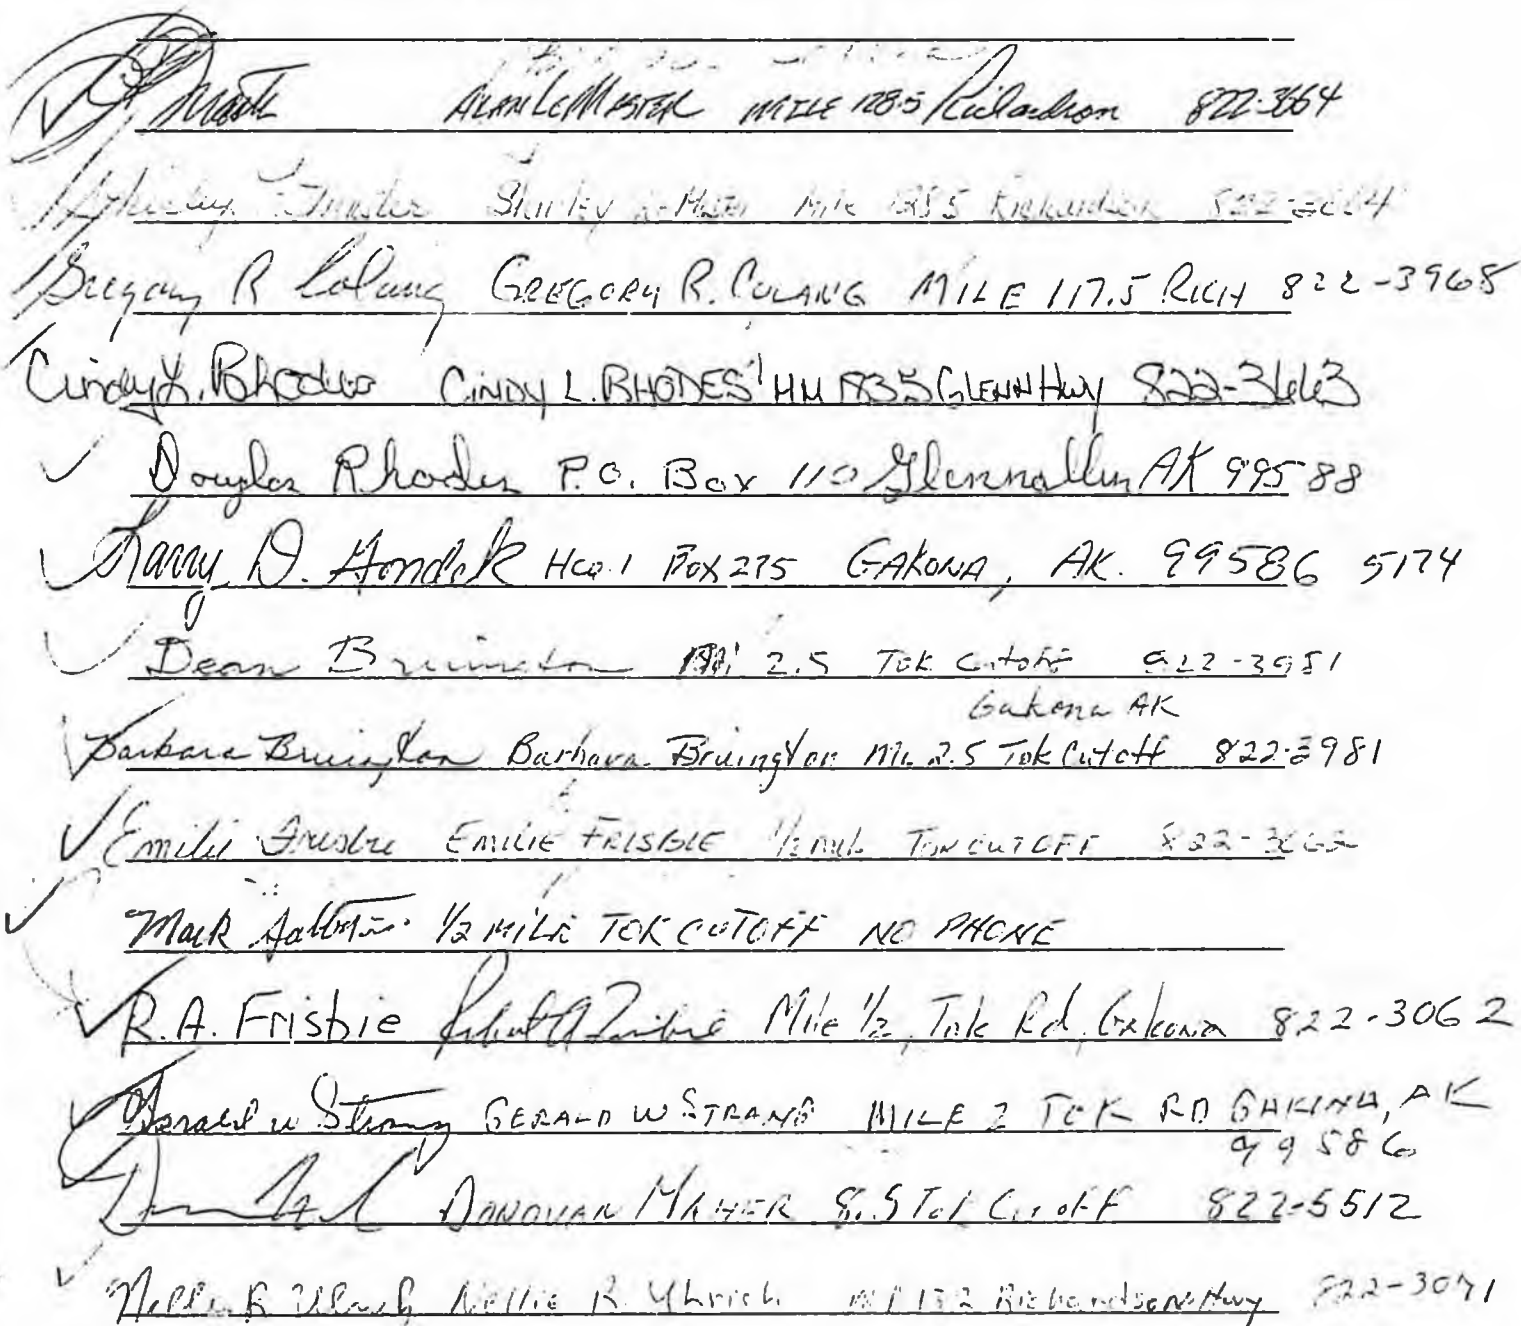 ALAN LEMASTER MILE 128.5 Richardson 822-3664
Shirley Mile 128.5 Richardson 822-3664
Gregory R Colang GREGORY R. COLANG MILE 117.5 RICH 822-3968
Cindy L. Rhodes CINDY L. RHODES GLENN Hwy 822-3663
Douglas Rhodes P.O. Box 110 Glennallen AK 99588
Larry D. Hondek HCO.1 BOX 275 GAKONA, AK. 99586 5174
Dean Bruington Mi 2.5 TOK Cutoff 822-3981
Gakona AK
Barbara Bruington Barbara Bruington Mi. 2.5 Tok Cutoff 822-3981
Emilie Frisbie EMILIE FRISBIE 1/2 mile TOK CUTOFF 822-3062
Mark 1/2 MILE TOK CUTOFF NO PHONE
R.A. Frisbie Robert A Frisbie Mile 1/2, Tok Rd, Gakona 822-3062
Gerald W Strang GERALD W STRANG MILE 2 TOK RD GAKONA, AK
99586
DONOVAN MAHER 8.5 Tok Cutoff 822-5512
Nellie R. Uhrich Richardson Hwy 822-3071